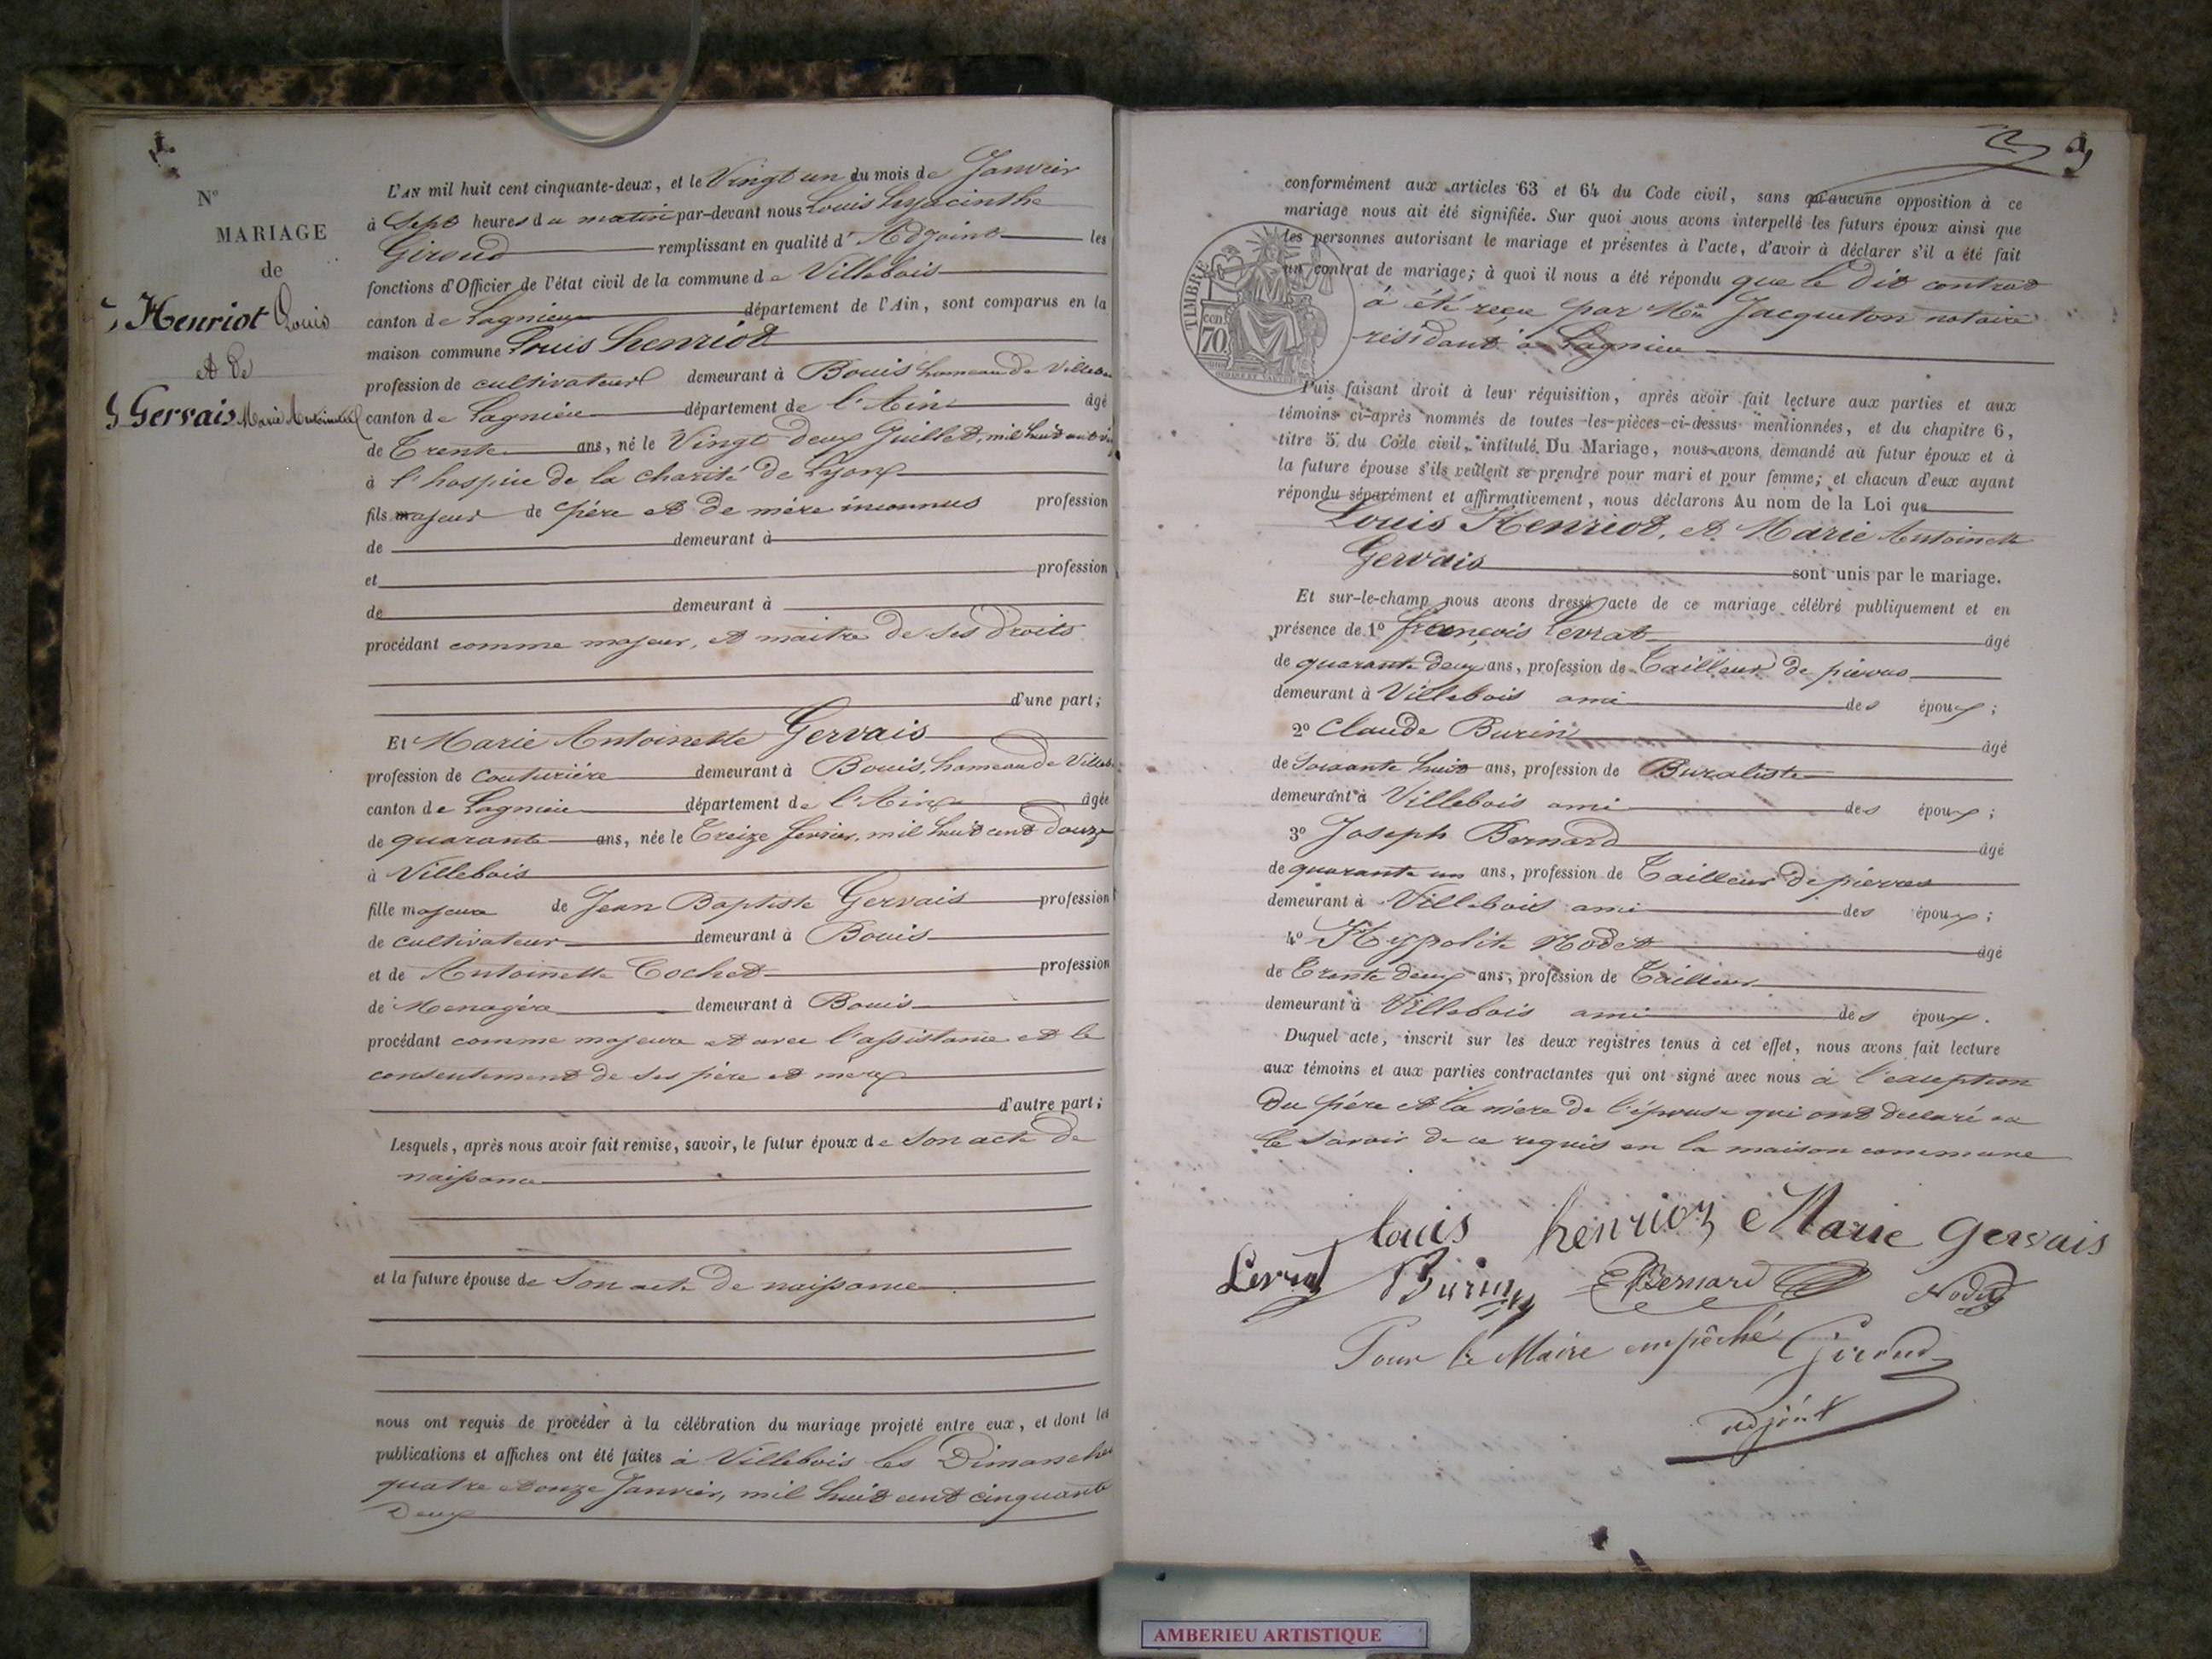 N°
MARIAGE
de
Henriot Louis
et de
Gervais Marie Antoinette
L'AN mil huit cent cinquante-deux, et le Vingt un du mois de Janvier
à Sept heures du matin par-devant nous Louis hyacinthe
Giroud remplissant en qualité d'Adjoint les
fonctions d'Officier de l'état civil de la commune de Villebois
canton de Lagnieu département de l'Ain, sont comparus en la
maison commune Louis henriot
profession de cultivateur demeurant à Bouis hameau de Villebois
canton de Lagnieu département de l'Ain âgé
de Trente ans, né le Vingt deux Juillet, mil huit cent
à l'hospice de la charité de Lyon
fils majeur de père et de mère inconnus profession
de demeurant à
et profession
de demeurant à
procédant comme majeur, et maitre de ses droits
d'une part;
Et Marie Antoinette Gervais
profession de couturière demeurant à Bouis, hameau de Villeb
canton de Lagnieu département de l'Ain âgée
de quarante ans, née le Treize fevrier, mil huit cent douze
à Villebois
fille majeure de Jean Baptiste Gervais profession
de cultivateur demeurant à Bouis
et de Antoinette Cochet profession
de Menagère demeurant à Bouis
procédant comme majeure et avec l'assistance et le
consentement de ses père et mere
d'autre part;
Lesquels, après nous avoir fait remise, savoir, le futur époux de son acte de
naissance
et la future épouse de son acte de naissance
nous ont requis de procéder à la célébration du mariage projeté entre eux, et dont les
publications et affiches ont été faites à Villebois les Dimanches
quatre et onze Janvier, mil huit cent cinquante
Deux
3
conformément aux articles 63 et 64 du Code civil, sans qu'aucune opposition à ce
mariage nous ait été signifiée. Sur quoi nous avons interpellé les futurs époux ainsi que
les personnes autorisant le mariage et présentes à l'acte, d'avoir à déclarer s'il a été fait
un contrat de mariage; à quoi il nous a été répondu que le dit contrat
à été reçu par Me Jacqueton notaire
résidant à Lagnieu
TIMBRE
70 cen.
Puis faisant droit à leur réquisition, après avoir fait lecture aux parties et aux
témoins ci-après nommés de toutes les pièces ci-dessus mentionnées, et du chapitre 6,
titre 5, du Code civil, intitulé Du Mariage, nous avons demandé au futur époux et à
la future épouse s'ils veulent se prendre pour mari et pour femme; et chacun d'eux ayant
répondu séparément et affirmativement, nous déclarons Au nom de la Loi que
Louis Henriot, et Marie Antoinette
Gervais sont unis par le mariage.
Et sur-le-champ nous avons dressé acte de ce mariage célébré publiquement et en
présence de 1° françois Levrat âgé
de quarante deux ans, profession de Tailleur de pierres
demeurant à Villebois ami des époux;
2° Claude Burin âgé
de soixante huit ans, profession de Buraliste
demeurant à Villebois ami des époux;
3° Joseph Bernard âgé
de quarante un ans, profession de Tailleur de pierres
demeurant à Villebois ami des époux;
4° Hypolite Nodet âgé
de Trente deux ans, profession de Tailleur
demeurant à Villebois ami des époux.
Duquel acte, inscrit sur les deux registres tenus à cet effet, nous avons fait lecture
aux témoins et aux parties contractantes qui ont signé avec nous à l'exception
du père et la mère de l'épouse qui ont declaré ne
le savoir de ce requis en la maison commune
louis henriot Marie Gervais
Levrat Burin Bernard Nodet
Pour le Maire empêché Giroud
adjoint
AMBERIEU ARTISTIQUE